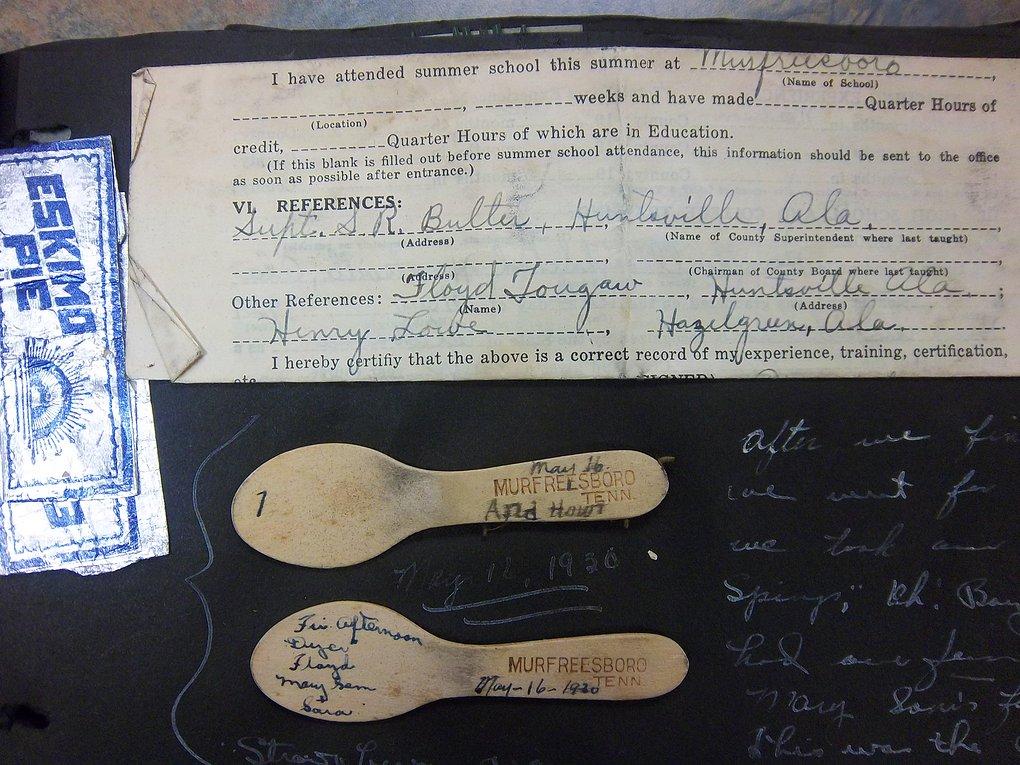 I have attended summer school this summer at Murfreesboro,
(Name of School)
, weeks and have made Quarter Hours of
(Location)
credit, Quarter Hours of which are in Education.
(If this blank is filled out before summer school attendance, this information should be sent to the office
as soon as possible after entrance.)
VI. REFERENCES:
Supt. S. R. Butler, Huntsville, Ala,
(Address) (Name of County Superintendent where last taught)
(Address) (Chairman of County Board where last taught)
Other References: Floyd Tougaw, Huntsville Ala. ;
(Name) (Address)
Henry Lowe, Hazelgreen, Ala.
I hereby certifiy that the above is a correct record of my experience, training, certification,
etc.
ESKIMO
PIE
1
May 16.
MURFREESBORO
TENN.
And How!
May 12, 1930
Fri. afternoon
Dyer
Floyd
Mary Sam
+
Sara
MURFREESBORO
TENN.
May-16-1930
after we
we went for
we took
had our
Mary
this was the